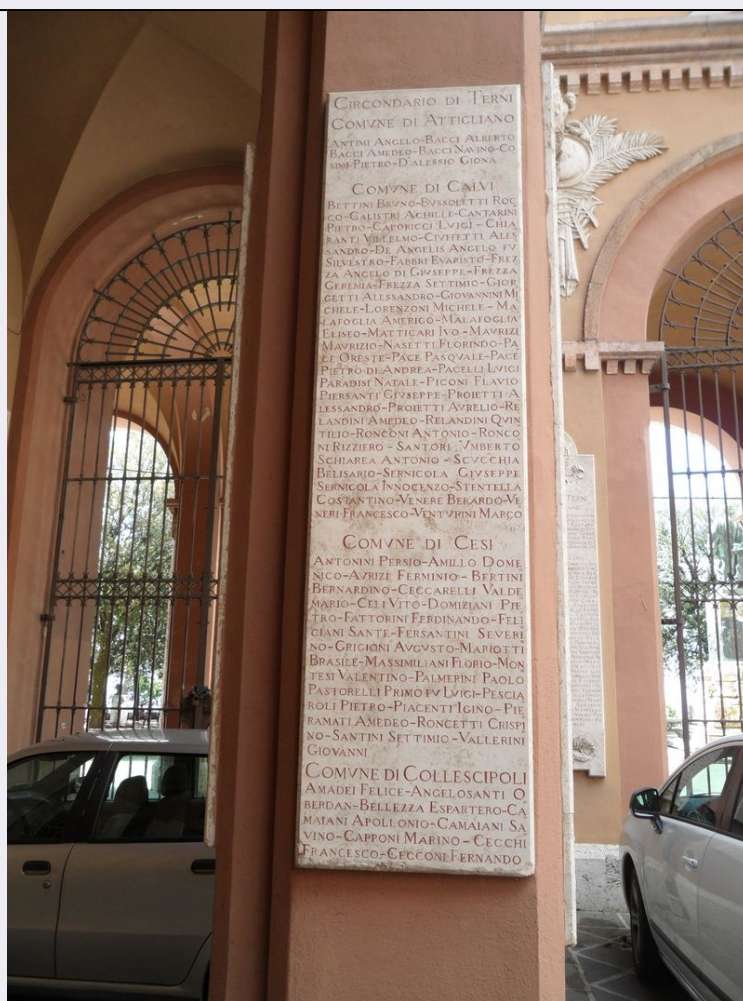 CIRCONDARIO DI TERNI
COMVNE DI ATTIGLIANO
ANTIMI ANGELO-BACCI ALBERTO
BACCI AMEDEO-BACCI NAVINO-CO
SIMI PIETRO-D'ALESSIO GIONA
COMVNE DI CALVI
BETTINI BRUNO-BVSSOLETTI ROC
CO-CALISTRI ACHILLE-CANTARINI
PIETRO-CAPORICCI LVIGI-CHIA
RANTI VILLELMO-CIVFFETTI ALES
SANDRO-DE ANGELIS ANGELO FV
SILVESTRO-FABBRI EVARISTO-FREZ
ZA ANGELO DI GIVSEPPE-FREZZA
GEREMIA-FREZZA SETTIMIO-GIOR
GETTI ALESSANDRO-GIOVANNINI MI
CHELE-LORENZONI MICHELE-MA
LAFOGLIA AMERIGO-MALAFOGLIA
ELISEO-MATTICARI IVO-MAVRIZI
MAVRIZIO-NASETTI FLORINDO-PA
CE ORESTE-PACE PASQVALE-PACE
PIETRO DI ANDREA-PACELLI LVIGI
PARADISI NATALE-PICONI FLAVIO
PIERSANTI GIVSEPPE-PROIETTI A
LESSANDRO-PROIETTI AVRELIO-RE
LANDINI AMEDEO-RELANDINI QVIN
TILIO-RONCONI ANTONIO-RONCO
NI RIZZIERO-SANTORI VMBERTO
SCHIAREA ANTONIO-SCVCCHIA
BELISARIO-SERNICOLA GIVSEPPE
SERNICOLA INNOCENZO-STENTELLA
COSTANTINO-VENERE BERARDO-VE
NERI FRANCESCO-VENTVRINI MARCO
COMVNE DI CESI
ANTONINI PERSIO-AMILLO DOME
NICO-AVRIZI FERMINIO-BERTINI
BERNARDINO-CECCARELLI VALDE
MARIO-CELI VITO-DOMIZIANI PIE
TRO-FATTORINI FERDINANDO-FELI
CIANI SANTE-FERSANTINI SEVERI
NO-GRIGIONI AVGVSTO-MARIOTTI
BRASILE-MASSIMILIANI FLORIO-MON
TESI VALENTINO-PALMERINI PAOLO
PASTORELLI PRIMO FV LVIGI-PESCIA
ROLI PIETRO-PIACENTI IGINO-PIE
RAMATI AMEDEO-RONCETTI CRISPI
NO-SANTINI SETTIMIO-VALLERINI
GIOVANNI
COMVNE DI COLLESCIPOLI
AMADEI FELICE-ANGELOSANTI O
BERDAN-BELLEZZA ESPARTERO-CA
MAIANI APOLLONIO-CAMAIANI SA
VINO-CAPPONI MARINO-CECCHI
FRANCESCO-CECCONI FERNANDO
TERNI